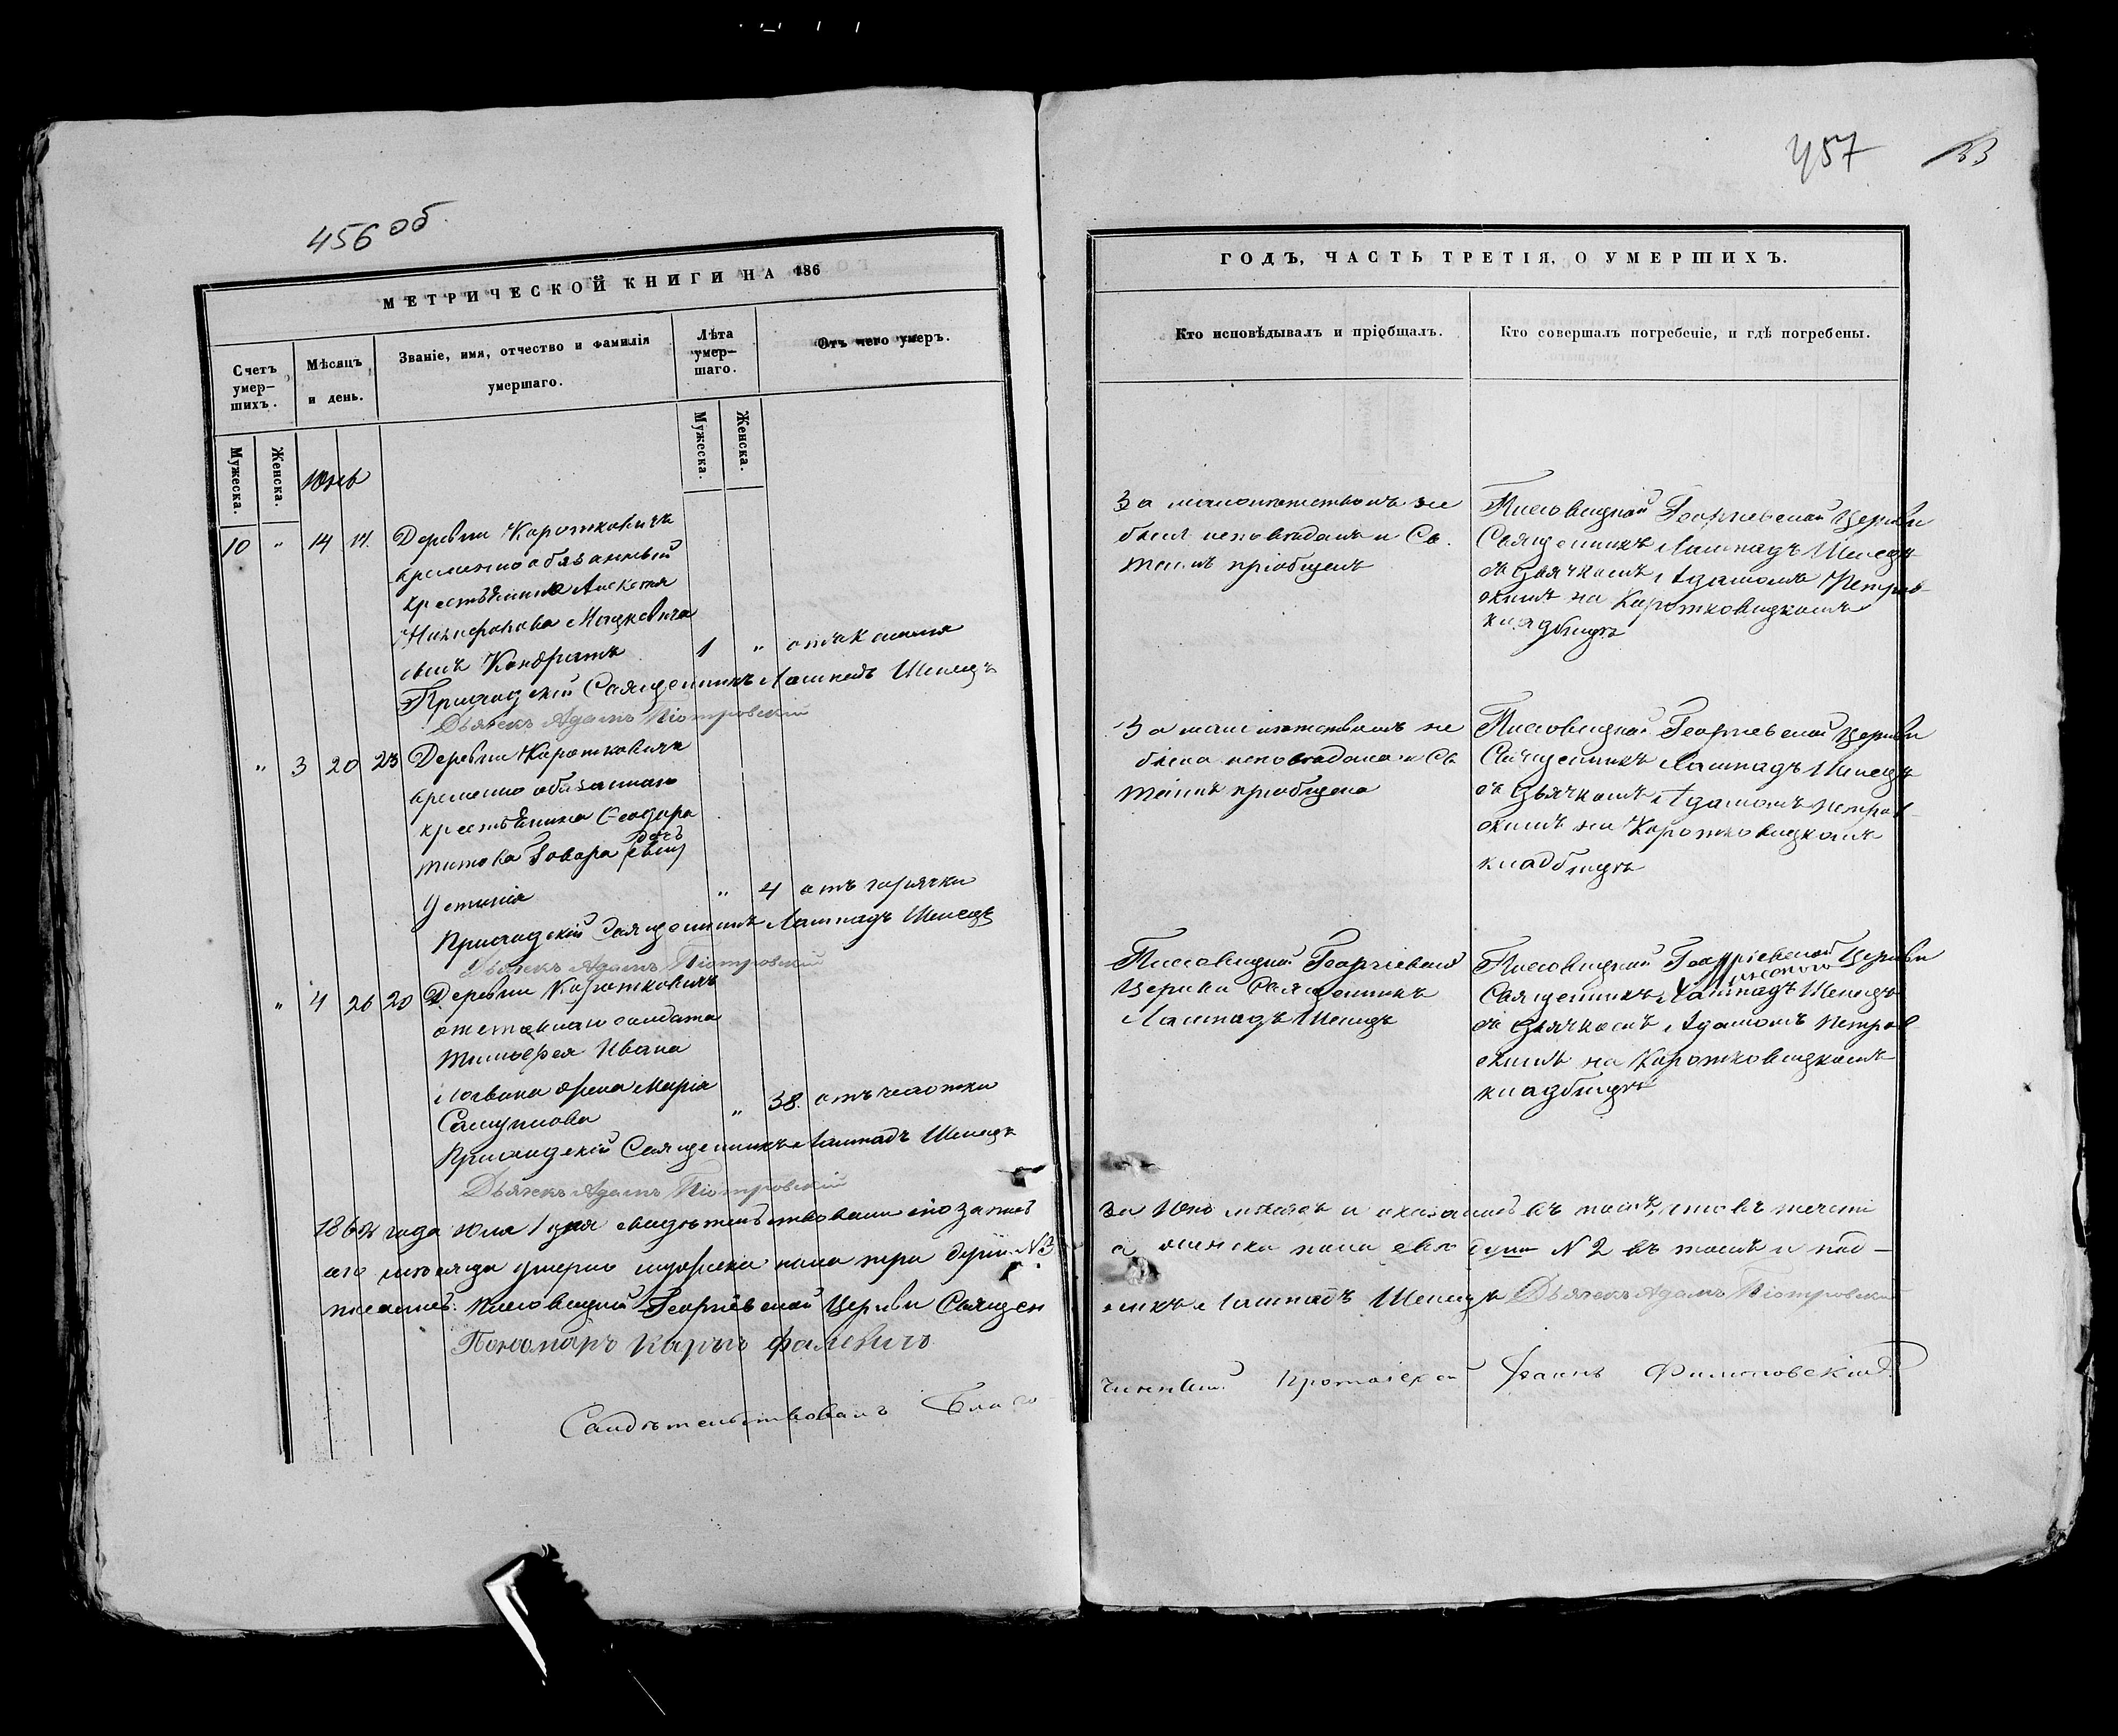 456 об.
МЕТРИЧЕСКОЙ КНИГИ НА 186
Счетъ умер-шихъ.
Мѣсяцъ и день.
Званіе, имя, отчество и фамилія умершаго.
Лѣта умер-шаго.
Отъ чего умеръ.
Мужеска.
Женска.
Мужеска.
Женска.
Юнь
10 " 14 17. Деревни Коротковичъ
временно обязанный
крестьянина
Никифорова Мацкевича
сынъ Кондратъ 1 " отъ кашля
Приходскій Священникъ Лампадъ Шепецъ
Дьячекъ Адамъ Піотровскій
" 3 20 23 Деревни Коротковичъ
временно обязаннаго
крестьянина Ѳеодора
Титова Говора дочь
Устинія " 4 отъ горячки
Приходскій Священникъ Лампадъ Шепецъ
Дьячекъ Адамъ Піотровскій
" 4 26 20 Деревни Коротковичъ
отставнаго солдата
Тимофея Ивана
жена Марія
Самуилова " 38. отъ чахотки
Приходскій Священникъ Лампадъ Шепецъ
Дьячекъ Адамъ Піотровскій
года Юля 1 дня свидѣтельствовали сію запись
его мѣсяца умерло мужеска пола три души N 3
писались: Георгіевской Церкви Священ
Пономарь Карпъ Фалевичъ
Свидѣтельствовалъ Благо
457
33
ГОДЪ, ЧАСТЬ ТРЕТІЯ, О УМЕРШИХЪ.
Кто исповѣдывалъ и пріобщалъ.
Кто совершалъ погребеніе, и гдѣ погребены.
За малолѣтствомъ не
былъ исповѣданъ и Св.
Таинъ пріобщенъ
Георгіевской Церкви
Священникъ Лампадъ Шепецъ
съ Дьячкомъ Адамомъ Петров-
скимъ на Коротковицкомъ
кладбищѣ
За малолѣтствомъ не
была исповѣдана и Св
Таинъ пріобщена
Георгіевской Церкви
Священникъ Лампадъ Шепецъ
съ Дьячкомъ Адамомъ Петров-
скимъ на Коротковицкомъ
кладбищѣ
Георгіевской
Церкви Священникъ
Лампадъ Шепецъ
Георгіевской Церкви
Священникъ Лампадъ Шепецъ
съ Дьячкомъ Адамомъ Петров
скимъ на Коротковицкомъ
кладбищѣ
за Юнь мѣсяцъ и оказалось въ томъ, что въ течені
а женска пола двѣ души N 2 въ томъ и под-
никъ Лампадъ Шепецъ Дьячекъ Адамъ Піотровскій
чинный Протоіерей Іоаннъ Филиповскій